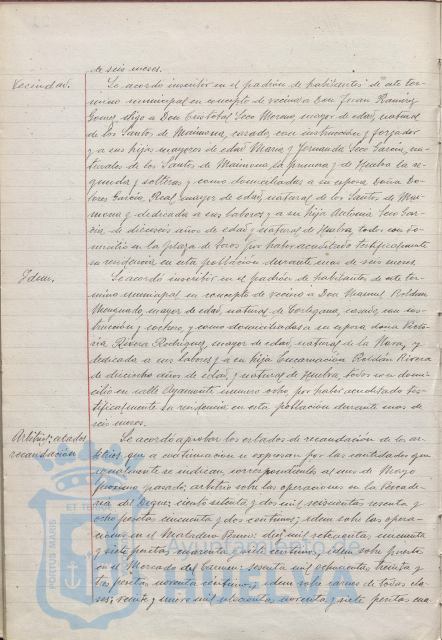 de seis meses.
Vecindad. Se acordó inscribir en el padrón de habitantes de este tér-
mino municipal en concepto de vecinos a Don Juan Ramírez
Gomez, digo a Don Cristobal Seco Moreno, mayor de edad, natural
de los Santos de Maimona, casado, con instrucción y forjador
y a sus hijas mayores de edad Maria y Fernanda Seco García, na-
turales de los Santos de Maimona la primera y de Huelva la se-
gunda y solteras y como domiciliadas a su esposa Doña Do-
lores García Real, mayor de edad, natural de los Santos de Mai-
mona y dedicada a sus labores y a su hija Antonia Seco Gar-
cía, de dieciseis años de edad y natural de Huelva, todos con do-
micilio en la plaza de toros por haber acreditado testificalmente
su residencia en esta población durante mas de seis meses.
Idem. Se acordó inscribir en el padrón de habitantes de este tér-
mino municipal en concepto de vecino a Don Manuel Roldan
Menguado, mayor de edad, natural de Cortegana, casado, con ins-
trucción y y como domiciliadas a su esposa doña Victo-
ria Rivera Rodriguez, mayor de edad, natural de la Nava, y
dedicada a sus labores y a su hija Encarnación Roldán Rivera
de dieciocho años de edad y natural de Huelva todos con domi-
cilio en calle Ayamonte numero ocho por haber acreditado tes-
tificalmente su residencia en esta población durante mas de
seis meses.
Arbitrios: estados Se acordó aprobar los estados de recaudación de los ar-
recaudación bitrios que a continuación se expresan por las cantidades que
igualmente se indican, correspondientes al mes de Mayo
proximo pasado; arbitrio sobre las operaciones en la Pescade-
ria del ciento setenta y dos mil seiscientas sesenta y
ocho pesetas cincuenta y dos centimos; idem sobre las opera-
ciones en el Mercadero diez mil ochocientas cincuenta
y siete pesetas cuarenta y siete centimos; idem sobre puestos
en el Mercado del Carmen: sesenta mil ochocientas treinta y
tres pesetas noventa centimos; idem sobre carnes de todas cla-
ses, veinte y nueve mil ochocientas noventa y siete pesetas cua-
Ayuntamiento de
HUELVA
PORTUS MARIS